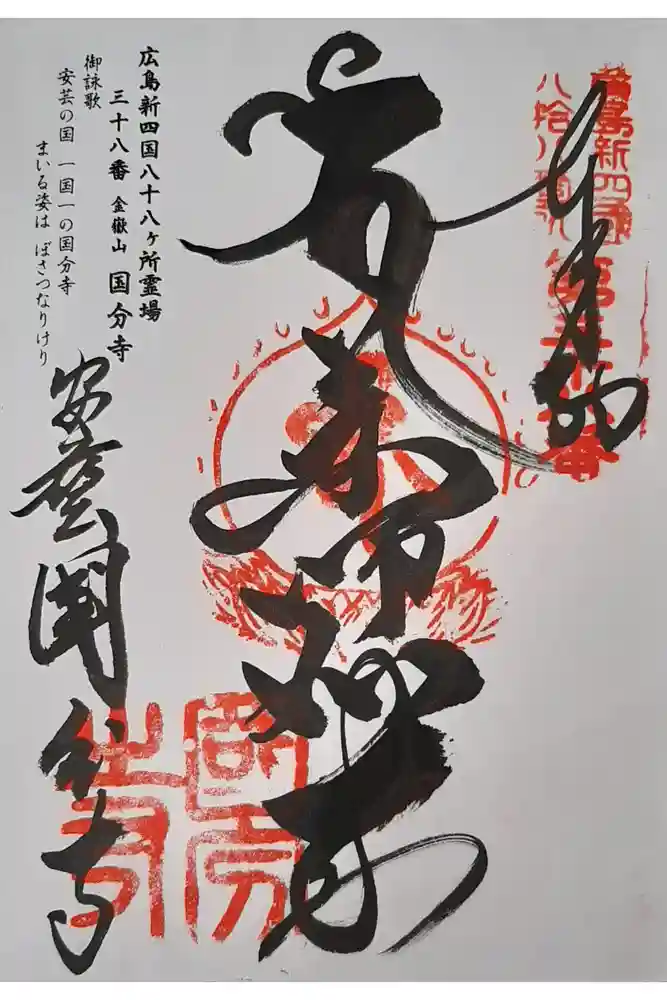 廣島新四國
八拾八箇所
第三十八番
薬師如来
広島新四国八十八ヶ所霊場
三十八番 金嶽山 国分寺
御詠歌
安芸の国 一国一の国分寺
まいる姿は ぼさつなりけり
安藝國分寺